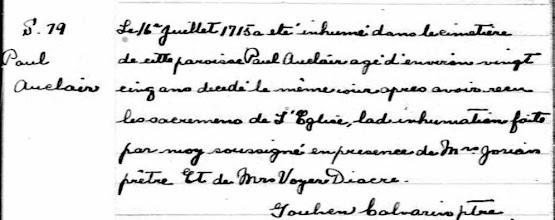 S. 79
Paul
Auclair
Le 16e Juillet 1715 a eté inhumé dans le cimetière
de cette paroisse Paul Auclair agé d'environ vingt
cinq ans decedé le même jour apres avoir recu
les sacremens de l'Eglise, lad. inhumation faite
par moy soussigné en presence de Mrs Jorian
prêtre Et de Mrs Voyer Diacre.
Goulven Calvarin ptre